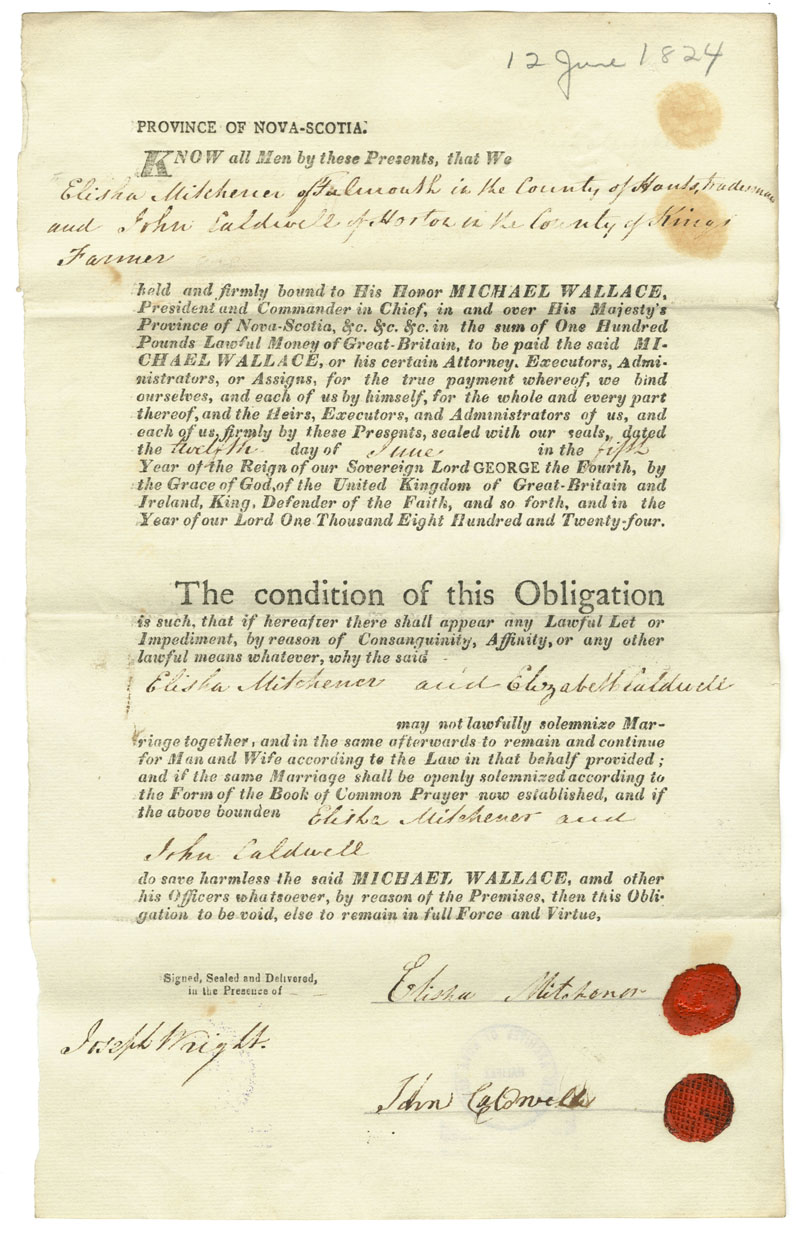 12 June 1824
PROVINCE OF NOVA-SCOTIA.
KNOW all Men by these Presents, that We
Elisha Mitchener of Falmouth in the County of Hants,
and John Caldwell of Horton in the County of Kings
Farmer
held and firmly bound to His Honor MICHAEL WALLACE,
President and Commander in Chief, in and over His Majesty's
Province of Nova-Scotia, &c. &c. &c. in the sum of One Hundred
Pounds Lawful Money of Great-Britain, to be paid the said MI-
CHAEL WALLACE, or his certain Attorney. Executors, Admi-
nistrators, or Assigns, for the true payment whereof, we bind
ourselves, and each of us by himself, for the whole and every part
thereof, and the Heirs, Executors, and Administrators of us, and
each of us, firmly by these Presents, sealed with our seals, dated
the twelfth day of June in the fifth
Year of the Reign of our Sovereign Lord GEORGE the Fourth, by
the Grace of God, of the United Kingdom of Great-Britain and
Ireland, King, Defender of the Faith, and so forth, and in the
Year of our Lord One Thousand Eight Hundred and Twenty-four.
The condition of this Obligation
is such, that if hereafter there shall appear any Lawful Let or
Impediment, by reason of Consanguinity, Affinity, or any other
lawful means whatever, why the said
Elisha Mitchener and Elizabeth Caldwell
may not lawfully solemnize Mar-
riage together, and in the same afterwards to remain and continue
for Man and Wife according to the Law in that behalf provided;
and if the same Marriage shall be openly solemnized according to
the Form of the Book of Common Prayer now established, and if
the above bounden Elisha Mitchener and
John Caldwell
do save harmless the said MICHAEL WALLACE, amd other
his Officers whatsoever, by reason of the Premises, then this Obli-
gation to be void, else to remain in full Force and Virtue,
Signed, Sealed and Delivered,
in the Presence of
Elisha Mitchenor
Joseph Wright.
John Caldwell